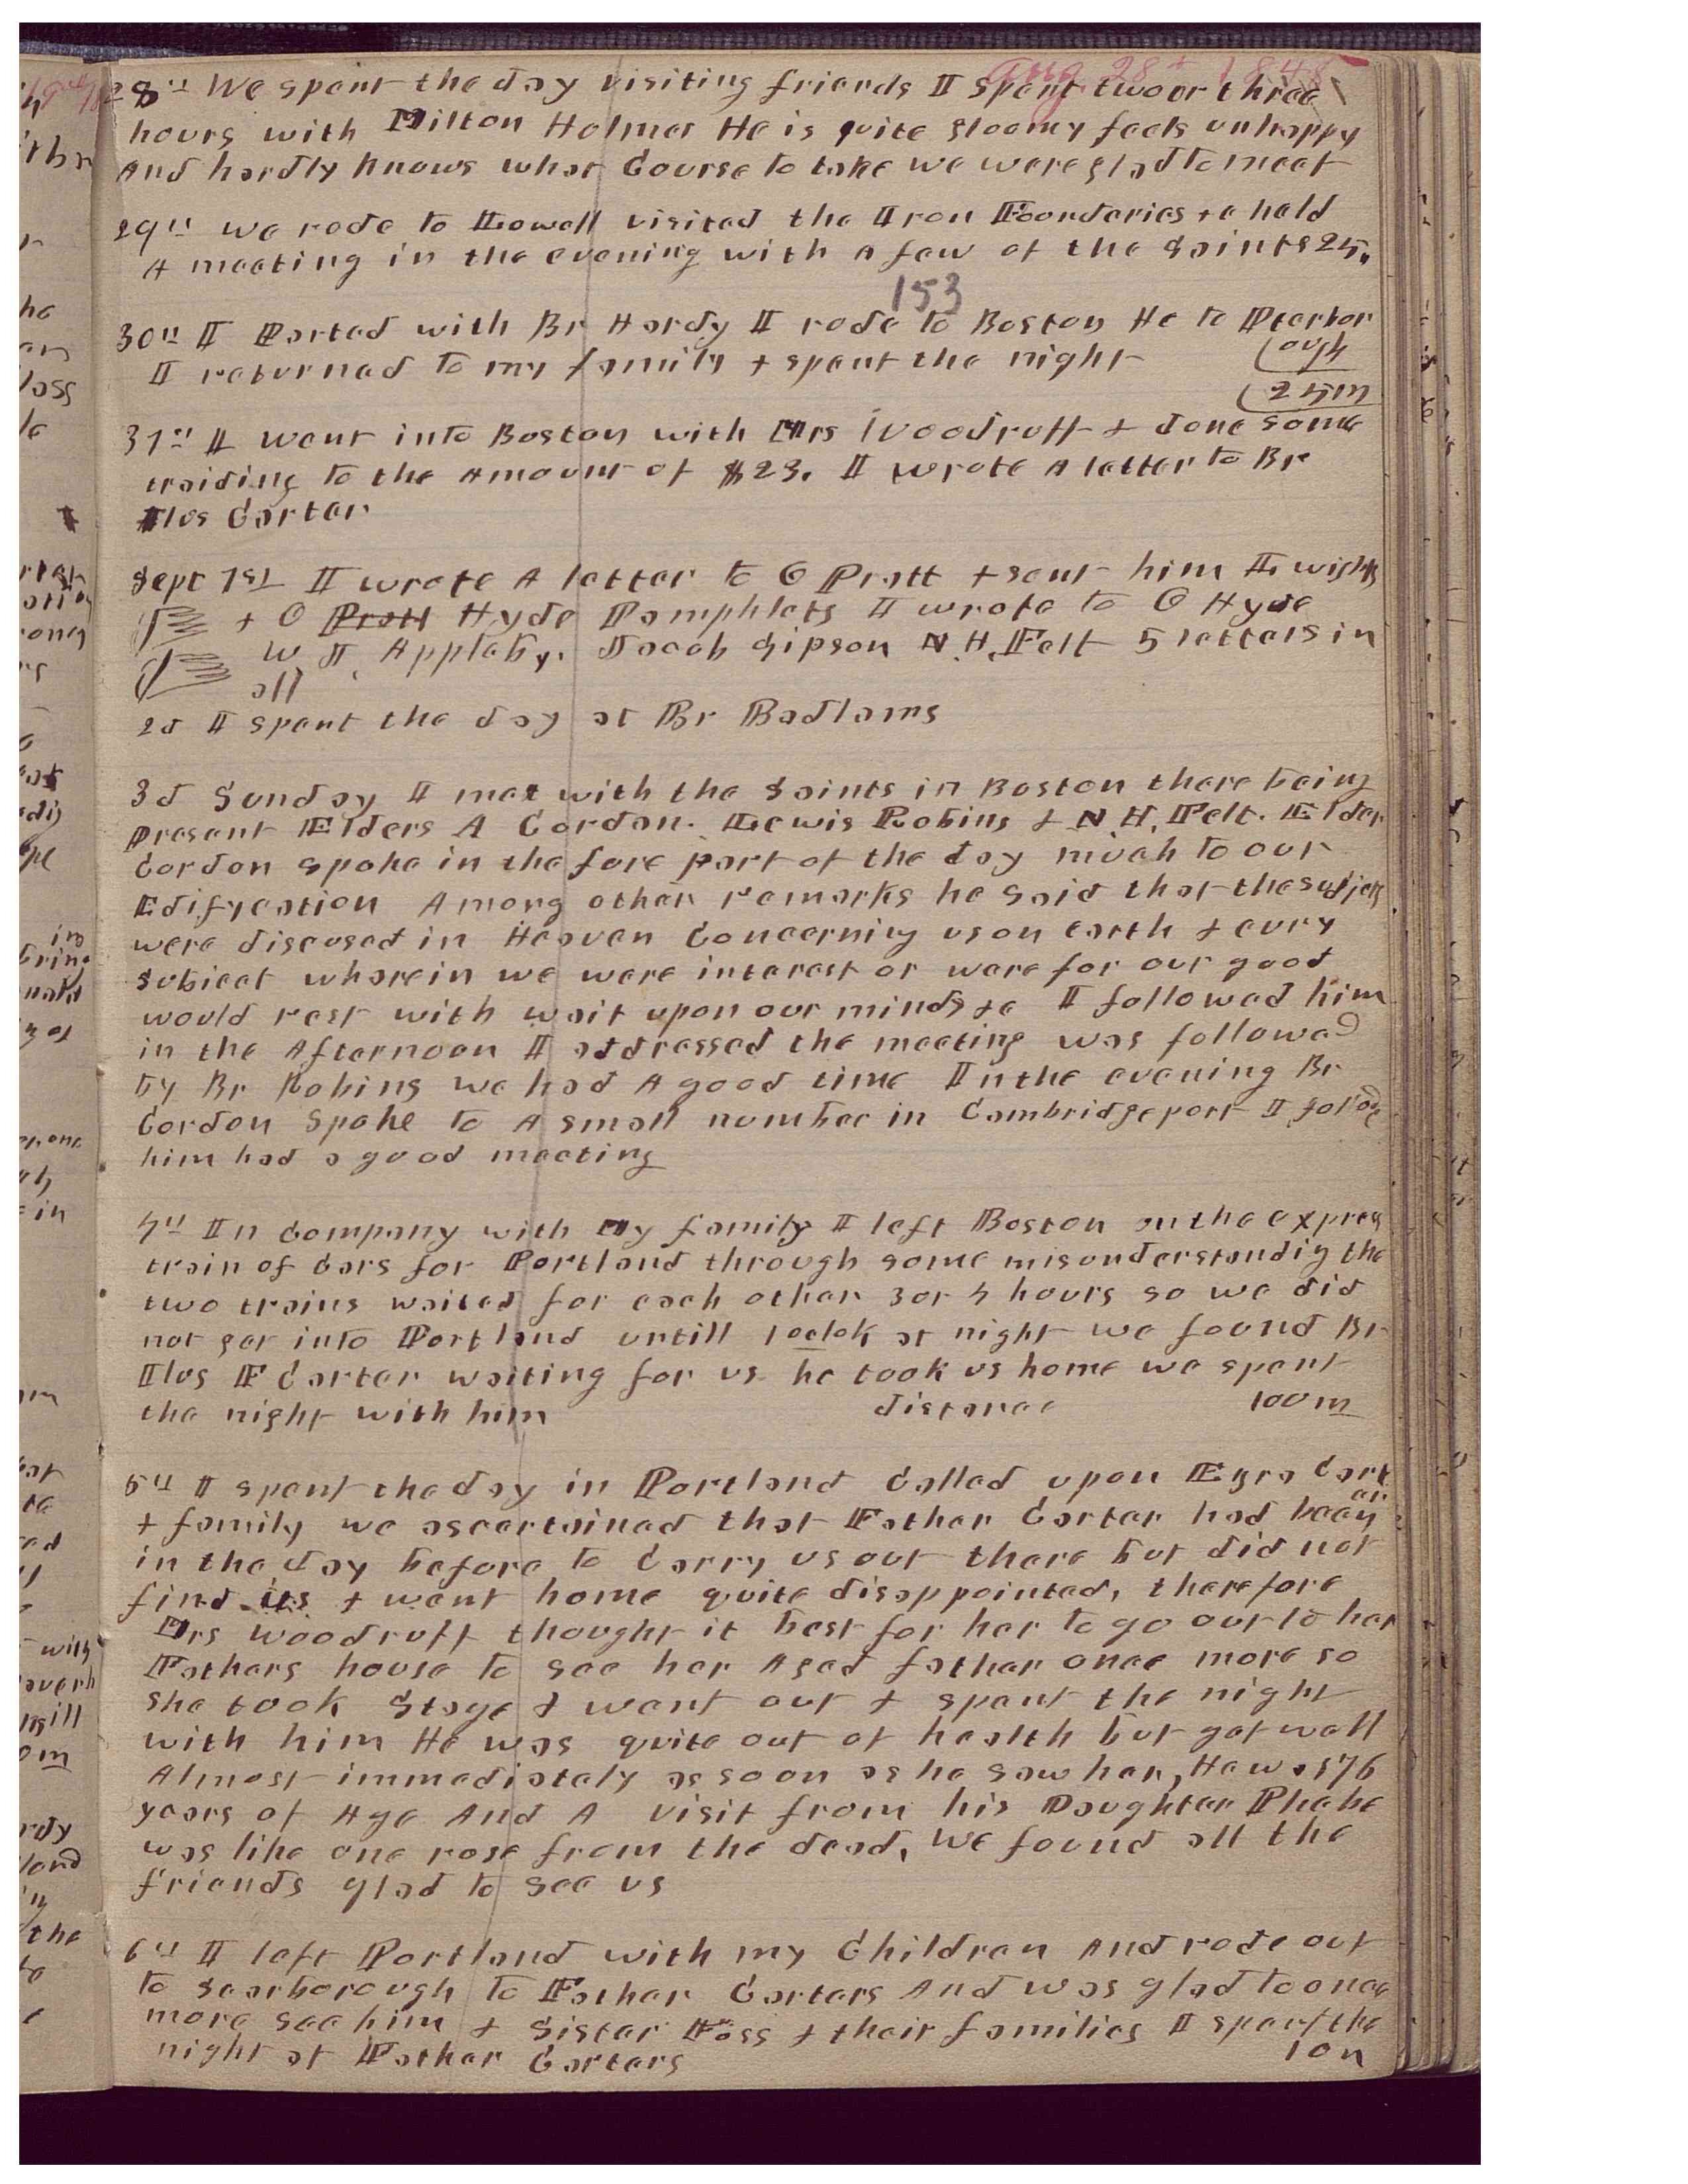 Aug 28th 1848
28th We spent the day visiting friends I spent two or three
hours with Milton Holmes He is quite gloomy feels unhappy
And hardly knows what Course to take we were glad to meet
29th we rode to Lowell visited the Iron Founderies &c held
A meeting in the evening with a few of the Saints 25.
153
30th I Parted with Br Hardy I rode to Boston He to Peterbor
ough
I returned to my family & spent the night
25m
31st I went into Boston with Mrs Woodruff & done some
traiding to the Amount of $23. I wrote A letter to Br
Ilus Carter
Sept 1st I wrote A letter to O Pratt & sent him L. wights
& O Pratt Hyde Pamphlets I wrote to O Hyde
W. I. Appleby. Jacob Gipson N. H. Felt 5 letters in
all
2d I spent the day at Br Badlams
3d Sunday I met with the Saints in Boston there being
present Elders A Cordon. Lewis Robins & N. H. Felt. Elder
Cordon spoke in the fore part of the day much to our
Edifycation Among other remarks he said that the subjets
were discused in Heaven Concerning us on earth & evry
subject wharein we were interest or were for our good
would rest with wait upon our minds &c I followed him
in the Afternoon I addressed the meeting was followed
by Br Robins we had A good time In the evening Br
Cordon Spoke to A small number in Cambridgeport I folode
him had a good meeting
4th In Company with My family I left Boston on the expres
train of Cars for Portland through some misunderstandig the
two trains waited for each other 3 or 4 hours so we did
not get into Portland untill 1 oclok at night we found Br
Ilus F Carter waiting for us he took us home we spent
the night with him distance 100 m
5th I spent the day in Portland Called upon Ezra Cart
er
& family we ascertained that Father Carter had been
in the day before to Carry us out there but did not
find us & went home quite disappointed, therefore
Mrs Woodruff thought it best for her to go out to her
Fathers house to see her Aged father once more so
she took Stage & went out & spent the night
with him He was quite out of health but got well
Almost immediately as soon as he saw her, He was 76
years of Age And A visit from his Daughter Phebe
was like one rose from the dead, we found all the
friends glad to see us
6th I left Portland with my Children And rode out
to Scarborough to Father Carters And was glad to once
more see him & Sister Foss & their families I spent the
night at Father Carters 10 m